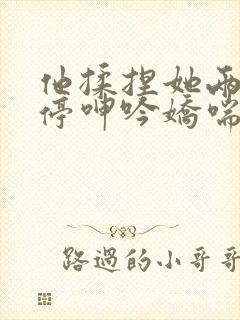 他揉捏她兩
停呻吟嬌喘
路過的小哥哥